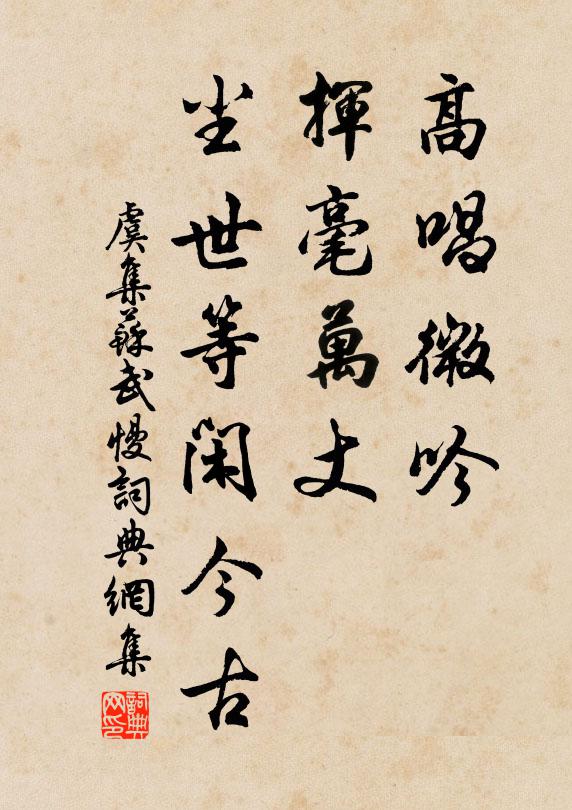 高唱微吟
揮毫萬丈
坐世等閑今古
虞集蘇武慢詞典網集
詞典网印